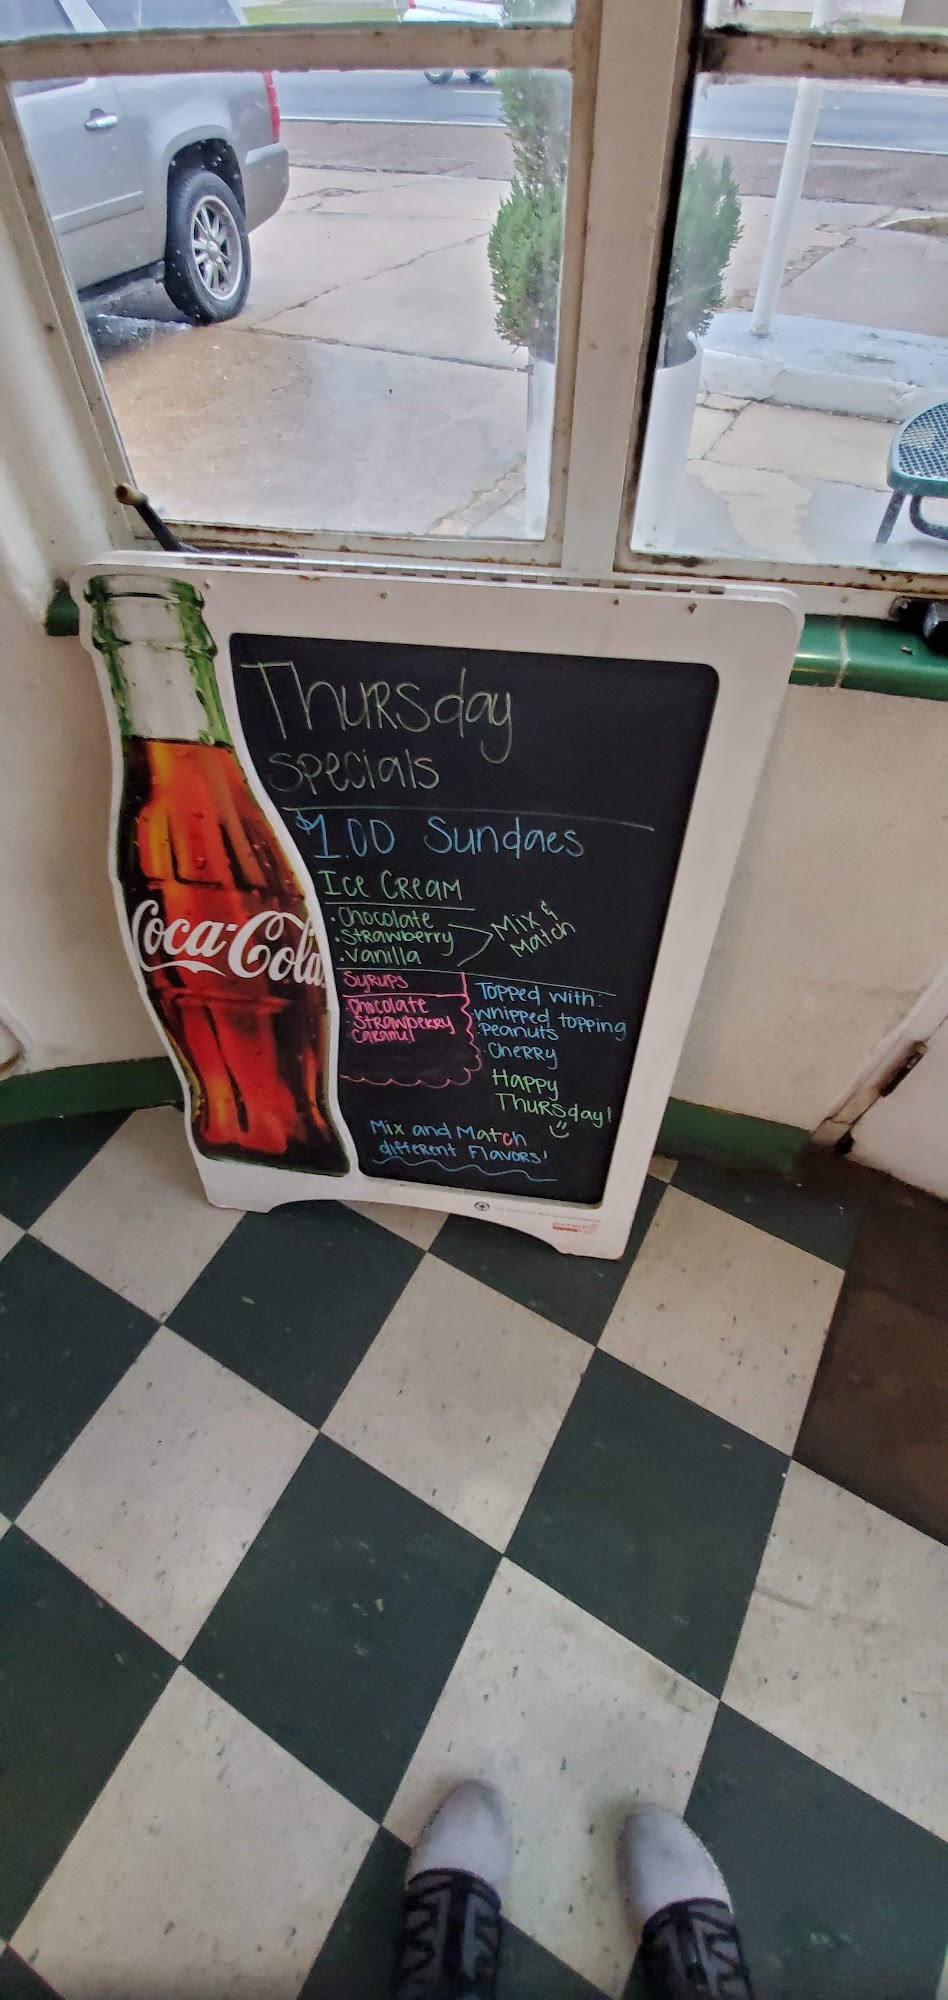 Thursday
specials
$1.00 Sundaes
Ice Cream
· Chocolate
· Strawberry
· Vanilla
Mix &
Match
Syrups
· Chocolate
· Strawberry
· Caramel
Topped with:
· whipped topping
· Peanuts
· Cherry
Happy
Thursday!
Mix and Match
different Flavors!
Coca-Cola